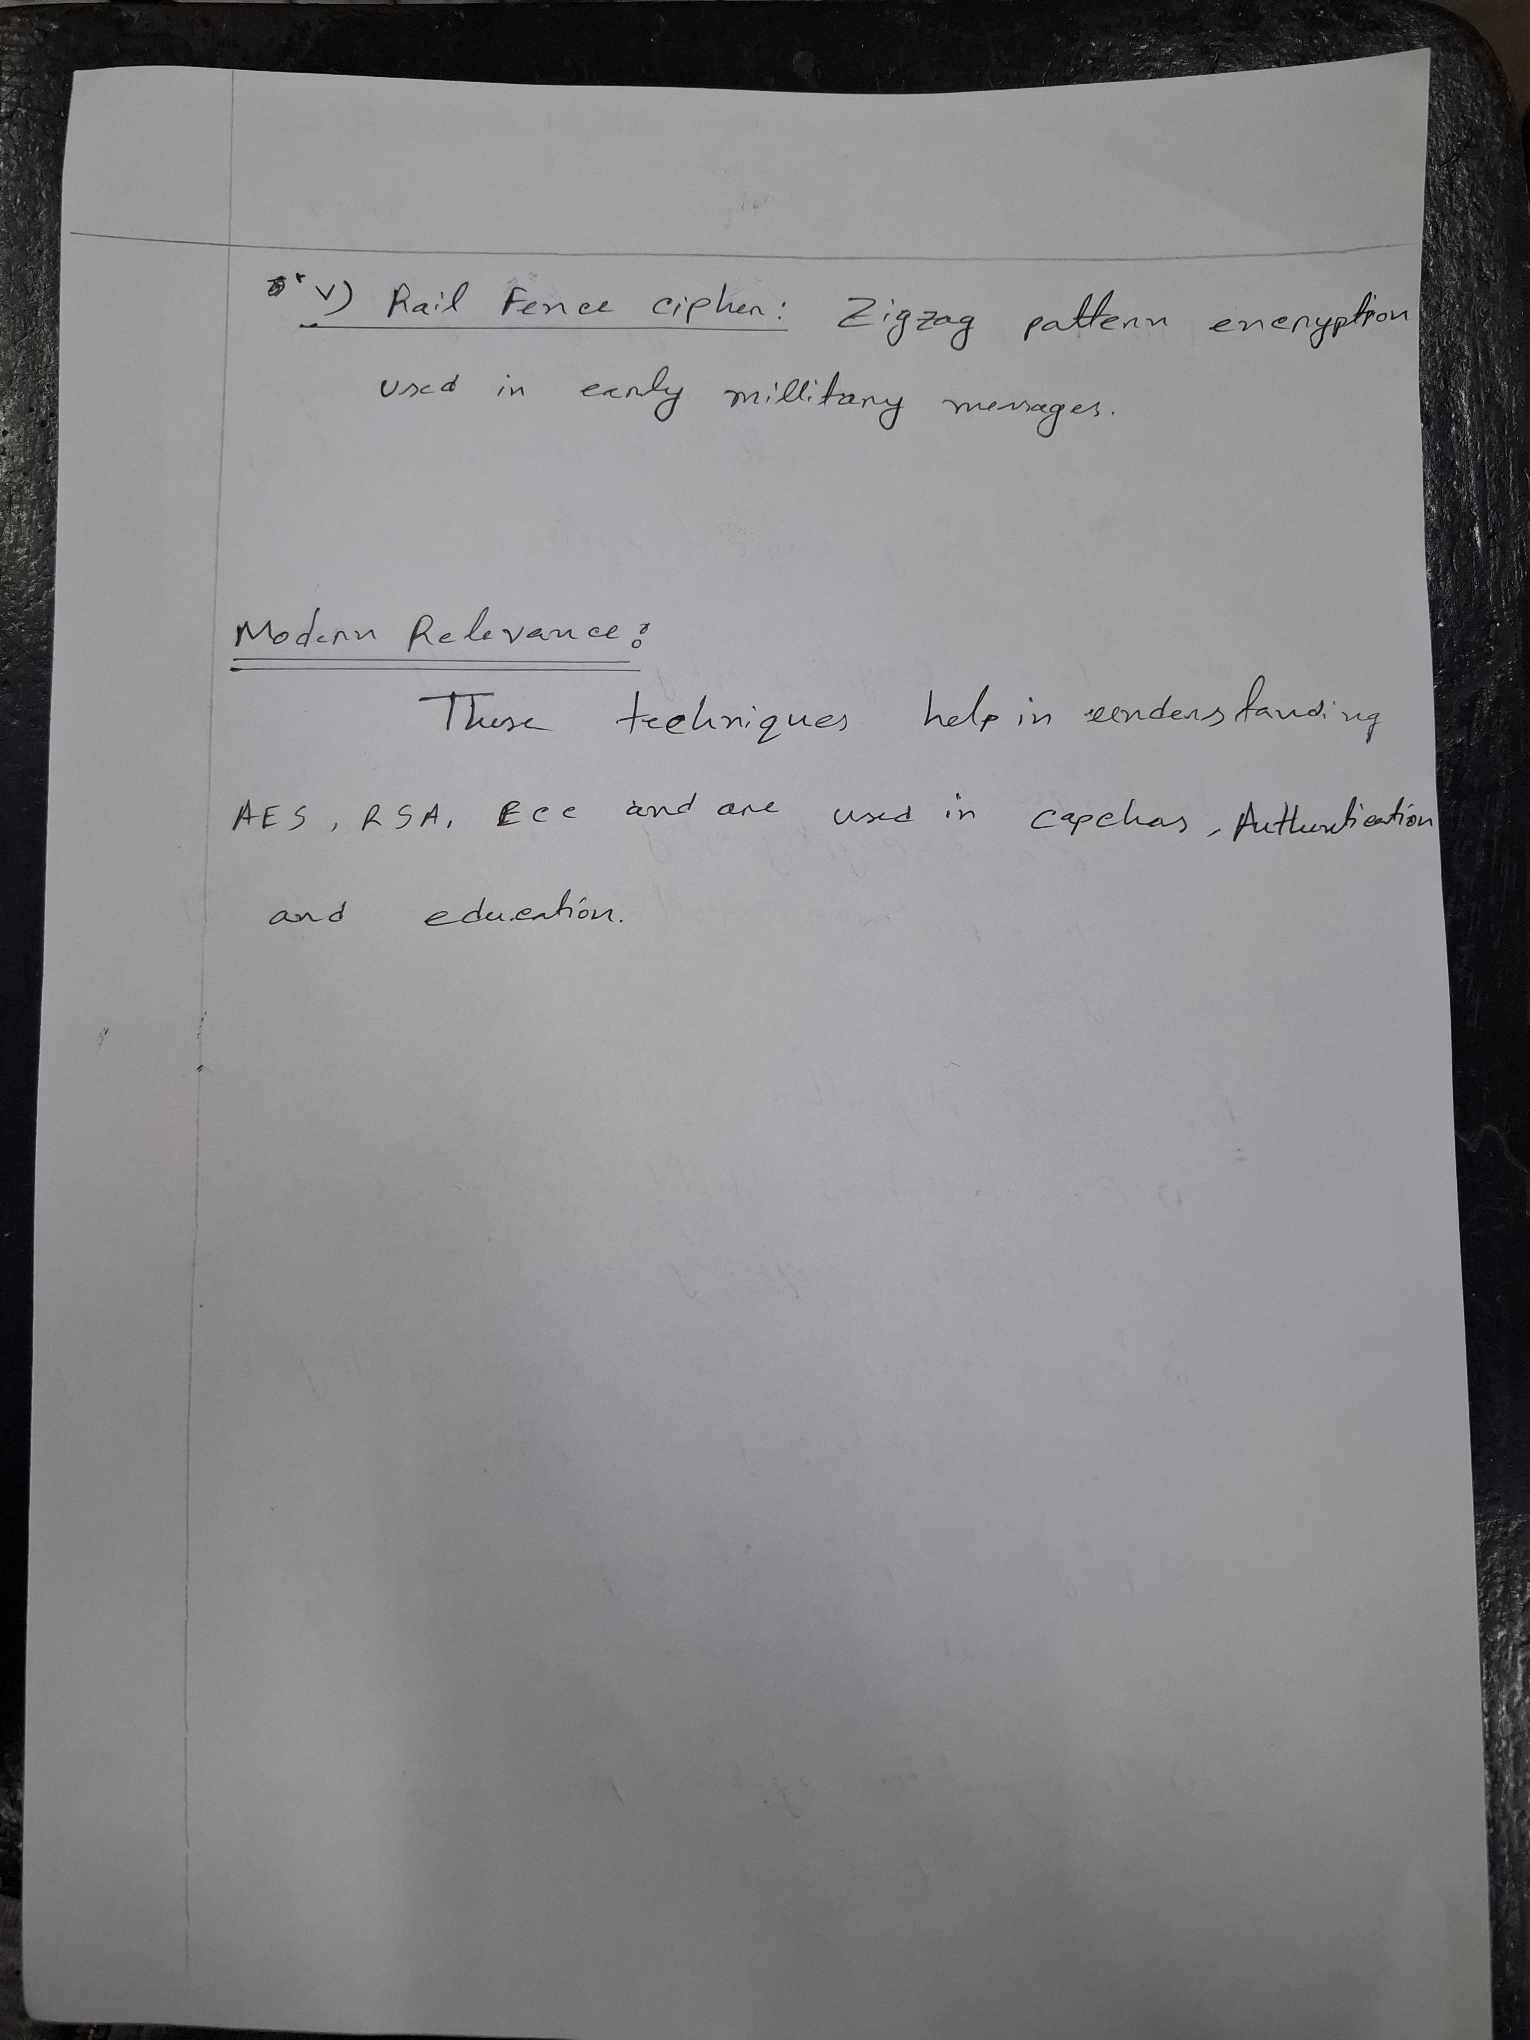 v) Rail Fence cipher: Zigzag pattern encryption
used in early millitary messages.
Modern Relevance:
These techniques help in understanding
AES, RSA, Ecc and are used in capchas, Authentication
and education.